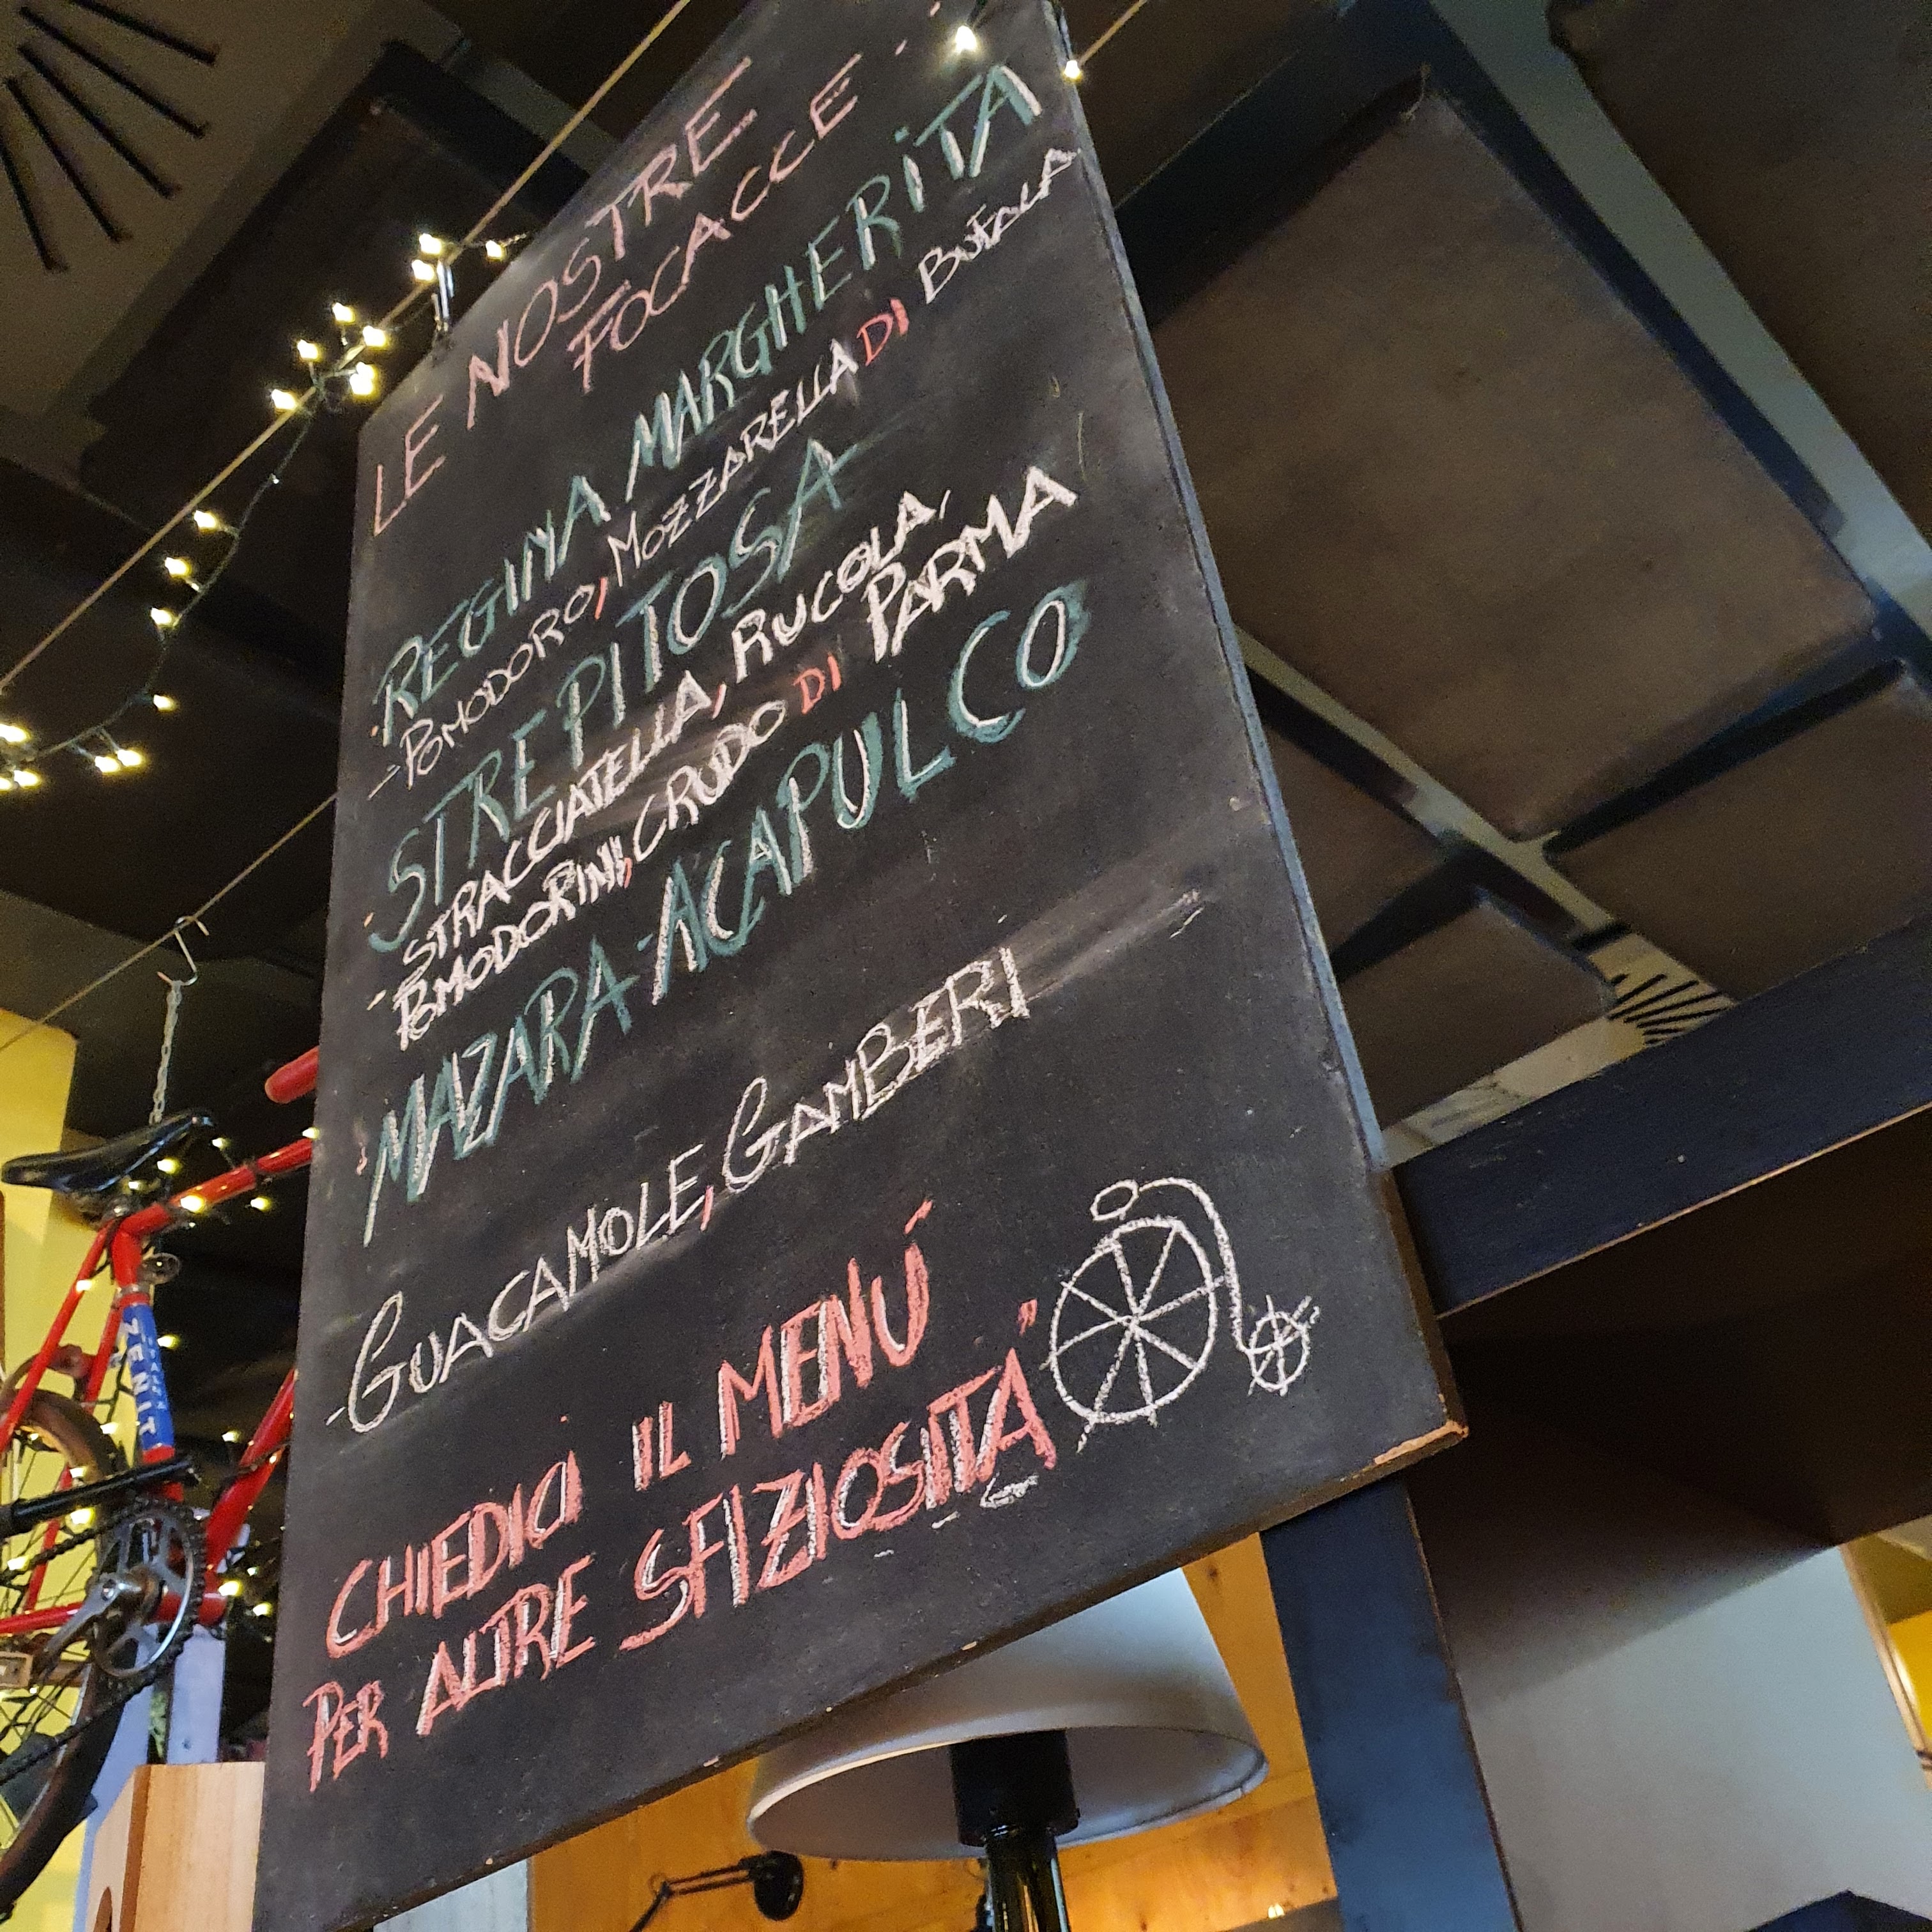 LE NOSTRE
FOCACCE
REGINA MARGHERITA
- POMODORO, MOZZARELLA DI BUFALA
STREPITOSA
- STRACCIATELLA, RUCOLA,
POMODORINI, CRUDO DI PARMA
MAZARA-ACAPULCO
- GUACAMOLE, GAMBERI
CHIEDICI IL MENÚ
PER ALTRE SFIZIOSITÀ"
ZENIT